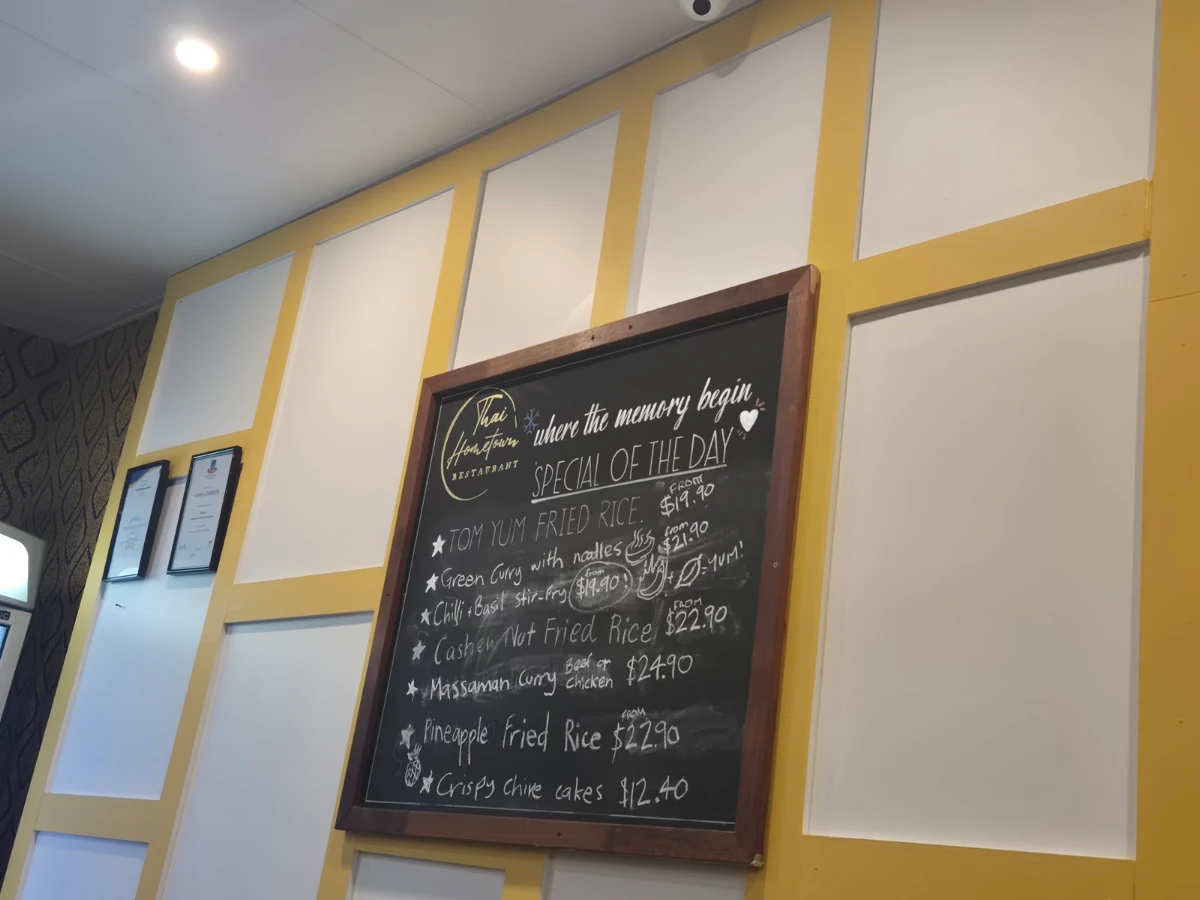 Thai
Hometown
RESTAURANT
where the memory begin
SPECIAL OF THE DAY
TOM YUM FRIED RICE. FROM $19.90
Green Curry with noodles from $21.90
Chilli + Basil stir-fry from $19.90! + = YUM!
Cashew Nut Fried Rice FROM $22.90
Massaman curry Beef or chicken $24.90
Pineapple Fried Rice FROM $22.90
Crispy chive cakes $12.40